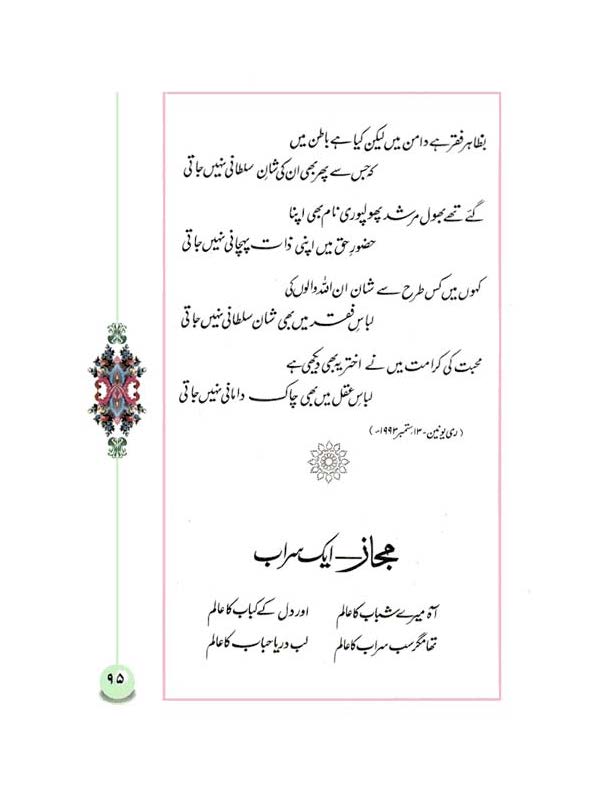 بظاہر فقر ہے دامن میں لیکن کیا ہے باطن میں
کہ جس سے پھر بھی ان کی شانِ سلطانی نہیں جاتی
گئے تھے بھول مرشد پھولپوری نام بھی اپنا
حضورِ حق میں اپنی ذات پہچانی نہیں جاتی
کہوں میں کس طرح سے شان ان اللہ والوں کی
لباسِ فقر میں بھی شان سلطانی نہیں جاتی
محبت کی کرامت میں نے اختر یہ بھی دیکھی ہے
لباسِ عقل میں بھی چاک دامانی نہیں جاتی
(ری یونین-۱۳ ستمبر ۱۹۹۳ء)
مجاز—ایک سراب
آہ میرے شباب کا عالم اور دل کے کباب کا عالم
تھا مگر سب سراب کا عالم لب دریا حباب کا عالم
۹۵